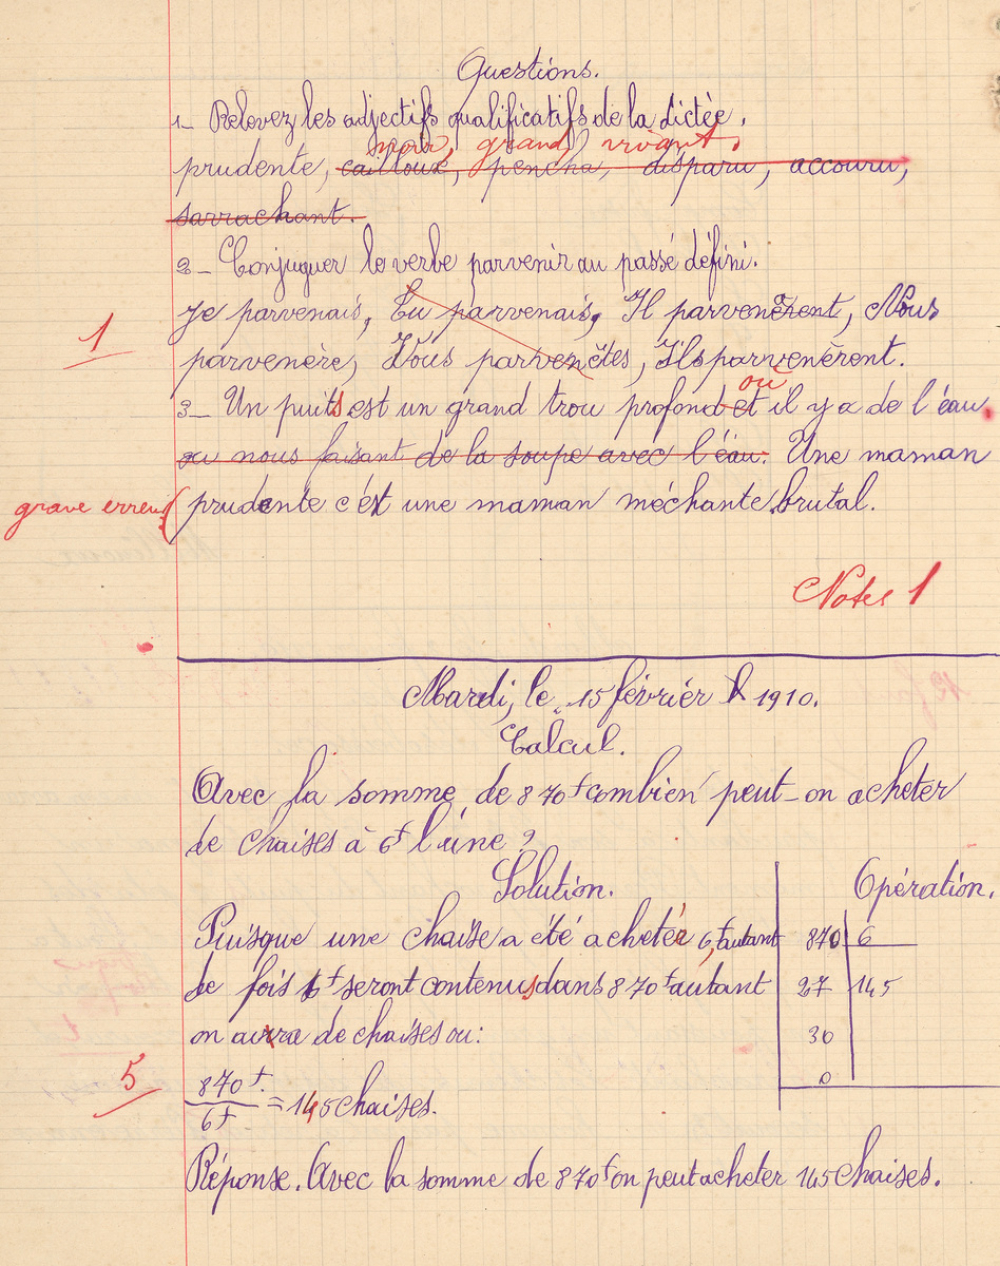 Questions.
1_ Relevez les adjectifs qualificatifs de la dictée.
noir, grand, vivant.
prudente, cailloux, pencha, disparu, accouru,
sarrachant.
2_ Conjuguer le verbe parvenir au passé défini.
Je parvenais, Tu parvenais, Il parvenèrent, Nous
1
parvenère, Vous parvenêtes, Ils parvenèrent.
où
3_ Un puits est un grand trou profond et il y a de l'éau.
ou nous faisant de la soupe avec l'éau. Une maman
grave erreur (prudente c'est une maman méchante, brutal.
Notes 1
Mardi, le 15 février 1910.
Calcul.
Avec la somme de 870f combien peut-on acheter
de chaises à 6f l'une ?
Solution.
Opération.
Puisque une chaise a été achetée 6f, autant
870 6
de fois 6f seront contenus dans 870f autant
27 145
on aura de chaises ou:
30
0
5
870f / 6f = 145 chaises.
Réponse. Avec la somme de 870f on peut acheter 145 chaises.